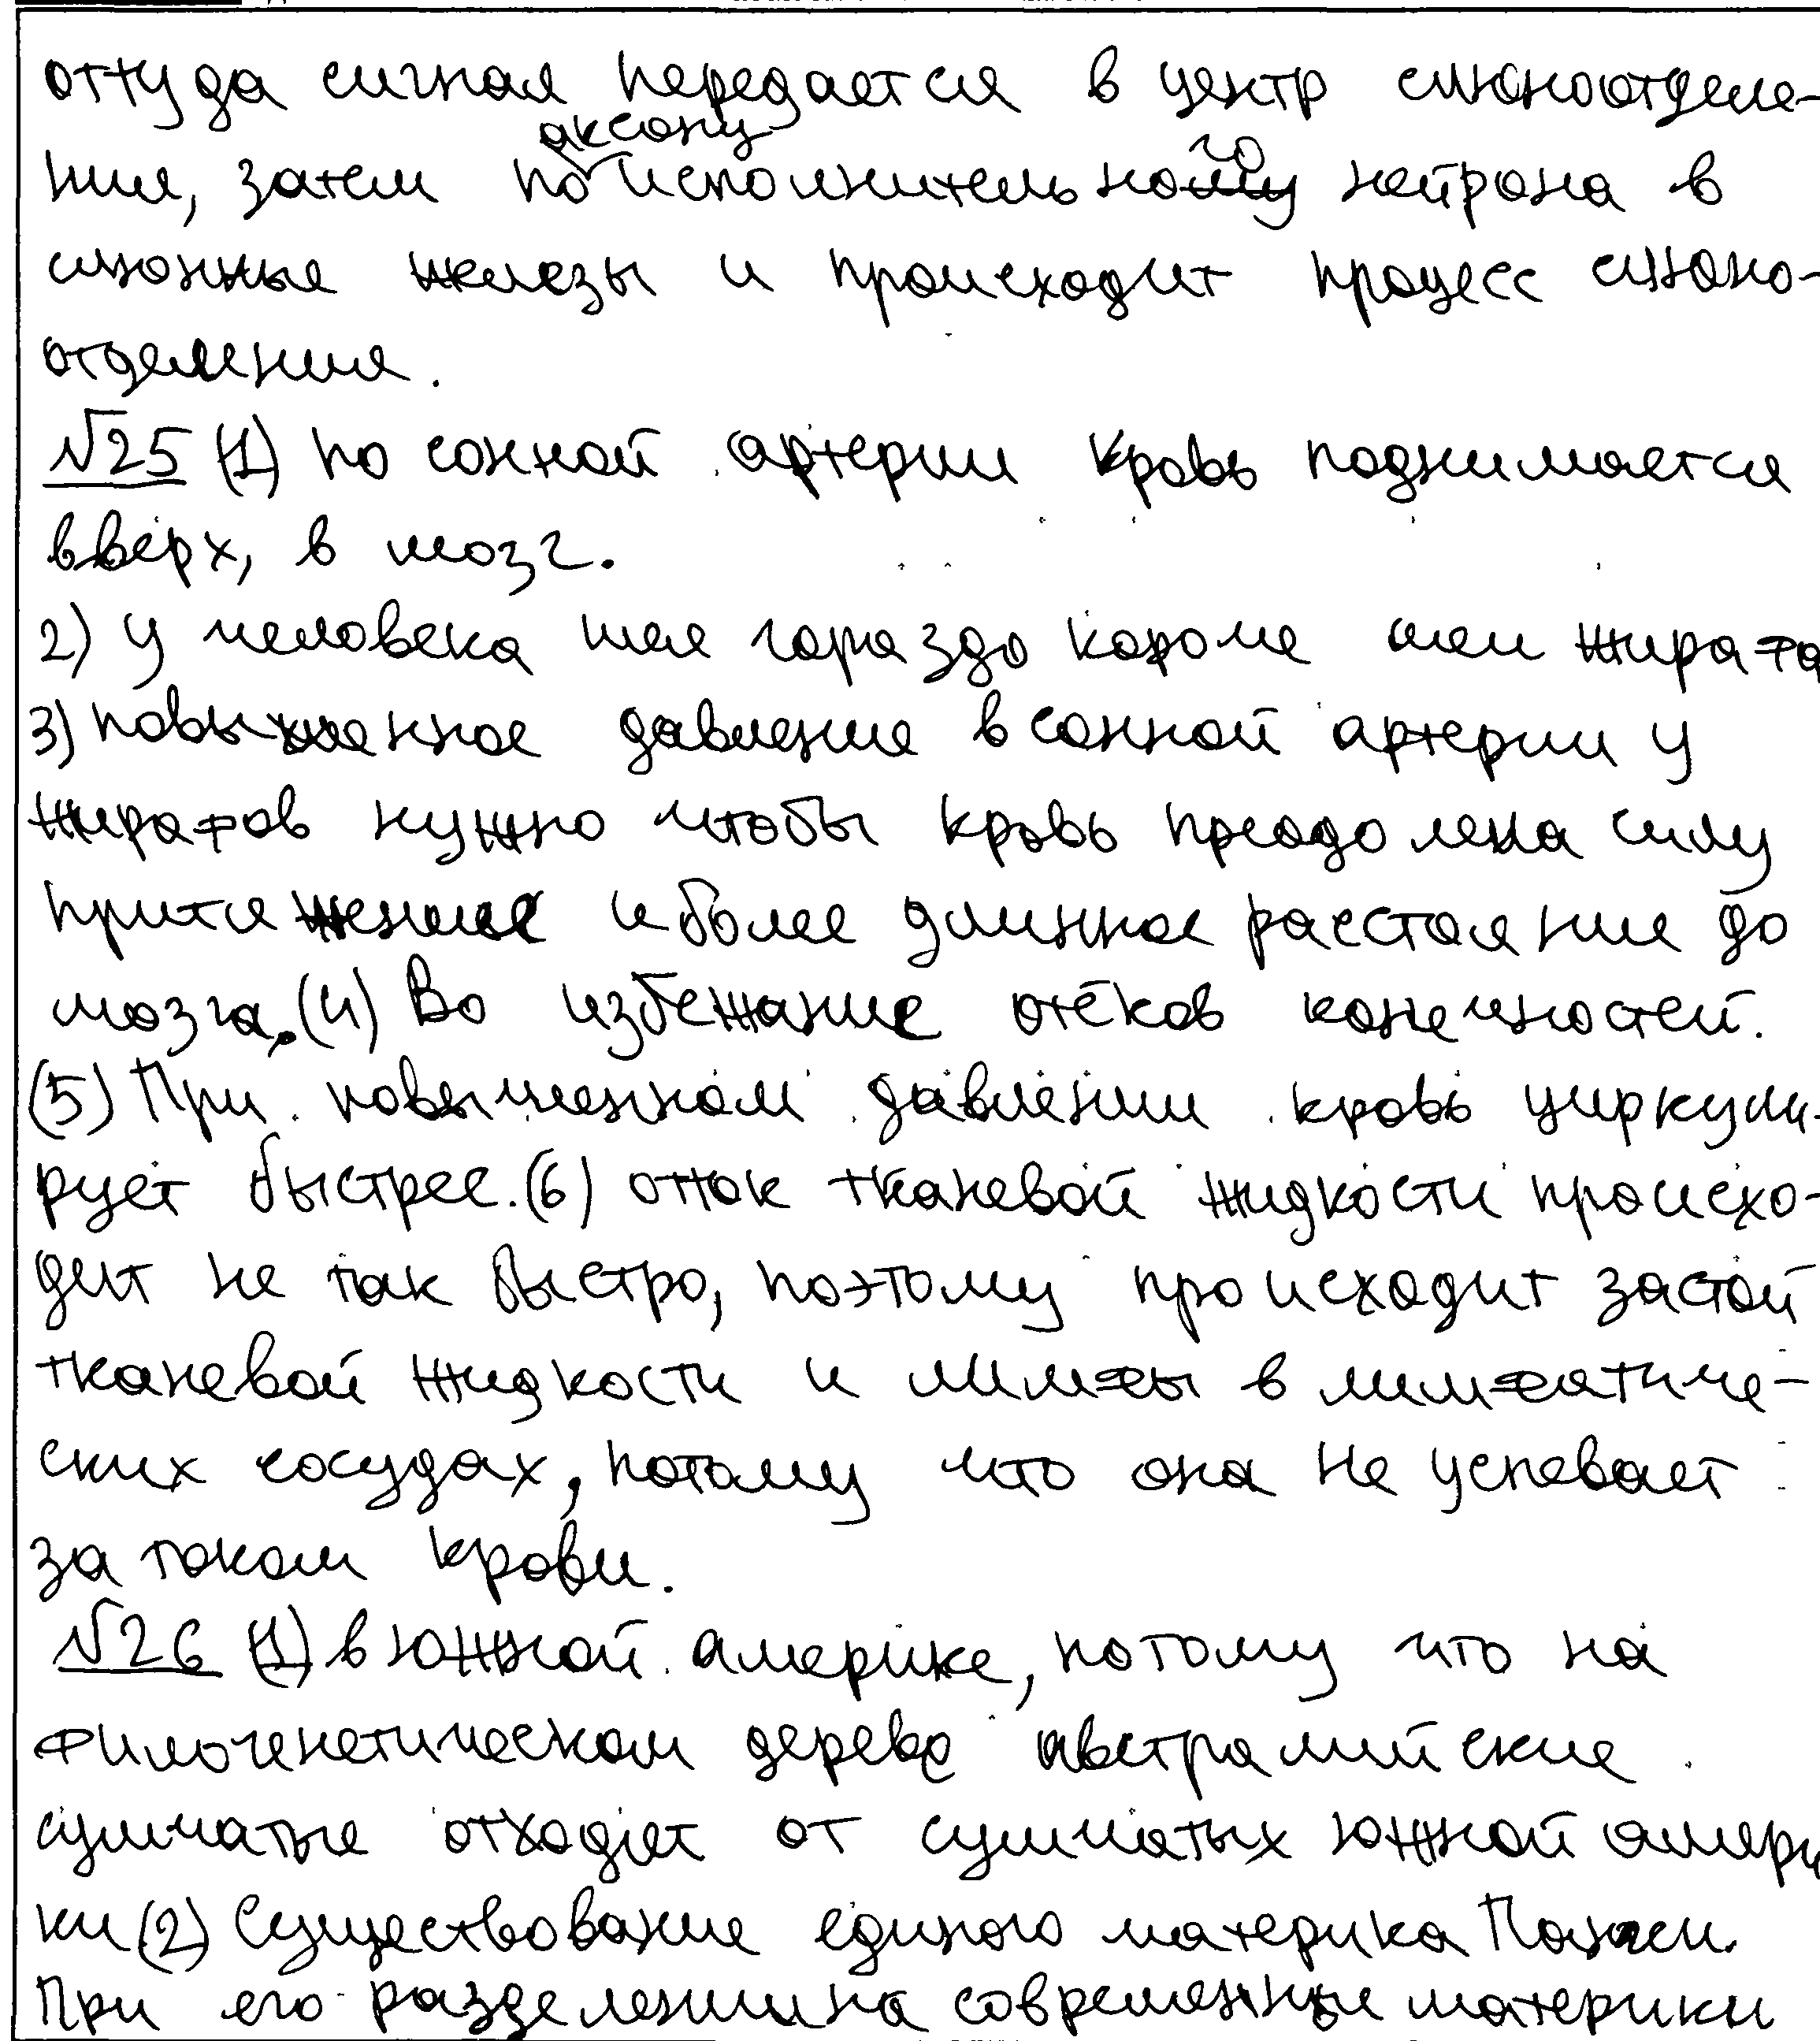 оттуда сигнал передается в центр слюноотделе-
ния, затем по аксону исполнительного нейрона в
слюнные железы и происходит процесс слюно-
отделения.
№25 (1) по сонной артерии кровь поднимается
вверх, в мозг.
2) у человека шея гораздо короче шеи жирафа
3) повышенное давление в сонной артерии у
жирафов нужно чтобы кровь преодолела силу
притяжения и более длинное расстояние до
мозга. (4) Во избежание отёков конечностей.
(5) При повышенном давлении кровь циркули-
рует быстрее. (6) отток тканевой жидкости происхо-
дит не так быстро, поэтому происходит застой
тканевой жидкости и лимфы в лимфатиче-
ских сосудах, потому что она не успевает
за током крови.
№26 (1) в южной америке, потому что на
филогенетическом дереве австралийские
сумчатые отходят от сумчатых южной амери
ки (2) Существование единого материка Пангеи.
При его разделении на современные материки